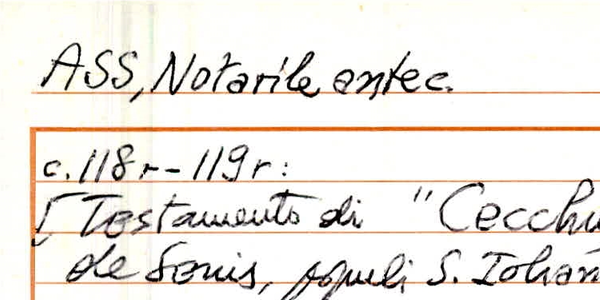 ASS, Notarile antec.
c. 118r - 119r:
[Testamento di "Cecchu
de Senis, populi S. Iohan